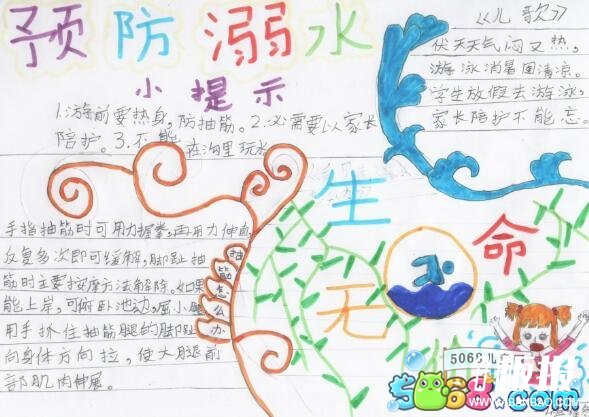 预防溺水
小提示
1.游前要热身,防抽筋。2.必需要以家长
陪护。3.不能在沟里玩水
《儿歌》
伏天天气闷又热,
游泳消暑图清凉。
学生放假去游泳,
家长陪护不能忘。
手指抽筋时可用力握拳,再用力伸直
反复多次即可缓解,脚趾抽
筋时主要按摩方法解除。如果
能上岸,可俯卧池边,屈小腿
用手抓住抽筋腿的脚趾
向身体方向拉,使大腿前
部肌肉伸展。
抽筋怎么办
生命
无
5068儿
板报
5068.com
WWW.BANBAO.COM